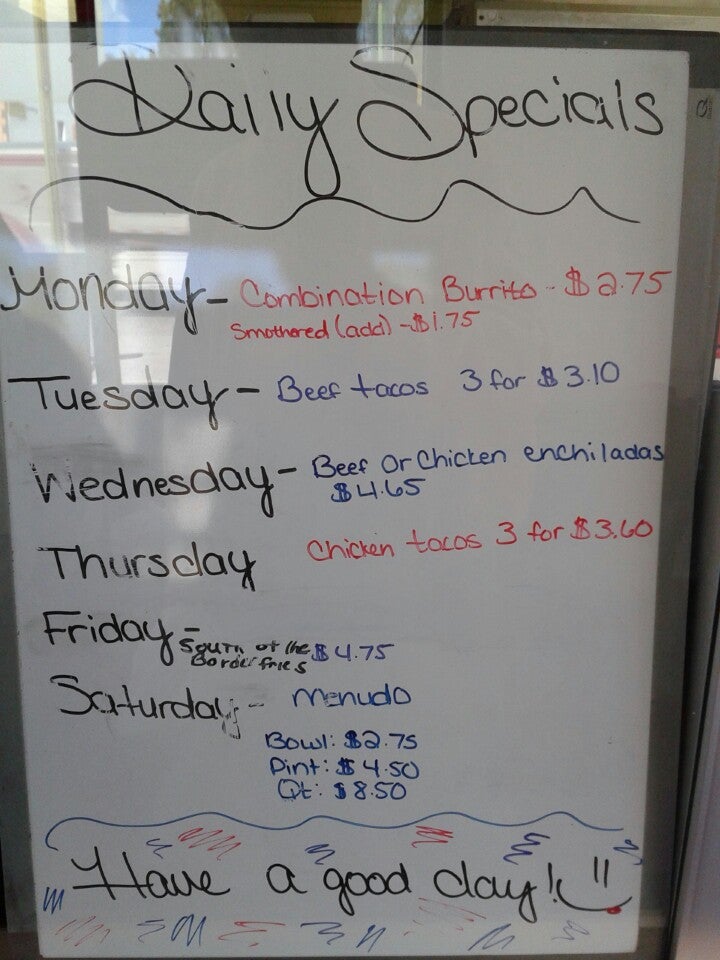 Daily Specials
Monday- Combination Burrito - $2.75
Smothered (add) - $1.75
Tuesday - Beef tacos 3 for $3.10
Wednesday - Beef Or Chicken enchiladas
$4.65
Thursday Chicken tacos 3 for $3.60
Friday - South of the $4.75
Border fries
Saturday - Menudo
Bowl: $2.75
Pint: $4.50
Qt: $8.50
Have a good day!